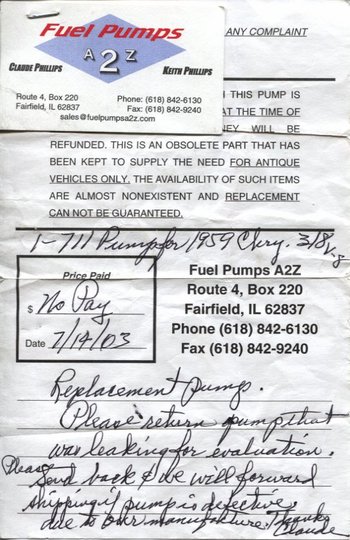 Fuel Pumps
A 2 Z
CLAUDE PHILLIPS
KEITH PHILLIPS
Route 4, Box 220
Fairfield, IL 62837
Phone: (618) 842-6130
Fax: (618) 842-9240
sales@fuelpumpsa2z.com
ANY COMPLAINT
THIS PUMP IS
AT THE TIME OF
WILL BE
REFUNDED. THIS IS AN OBSOLETE PART THAT HAS
BEEN KEPT TO SUPPLY THE NEED FOR ANTIQUE
VEHICLES ONLY. THE AVAILABILITY OF SUCH ITEMS
ARE ALMOST NONEXISTENT AND REPLACEMENT
CAN NOT BE GUARANTEED.
1-711 Pump for 1959 Chry. 318 V-8
Price Paid
$ No Pay
Date 7/14/03
Fuel Pumps A2Z
Route 4, Box 220
Fairfield, IL 62837
Phone (618) 842-6130
Fax (618) 842-9240
Replacement pump.
Please return pump that
was leaking for evaluation.
Please
Send back & we will forward
shipping if pump is defective
due to our manufacture. Thanks
Claude